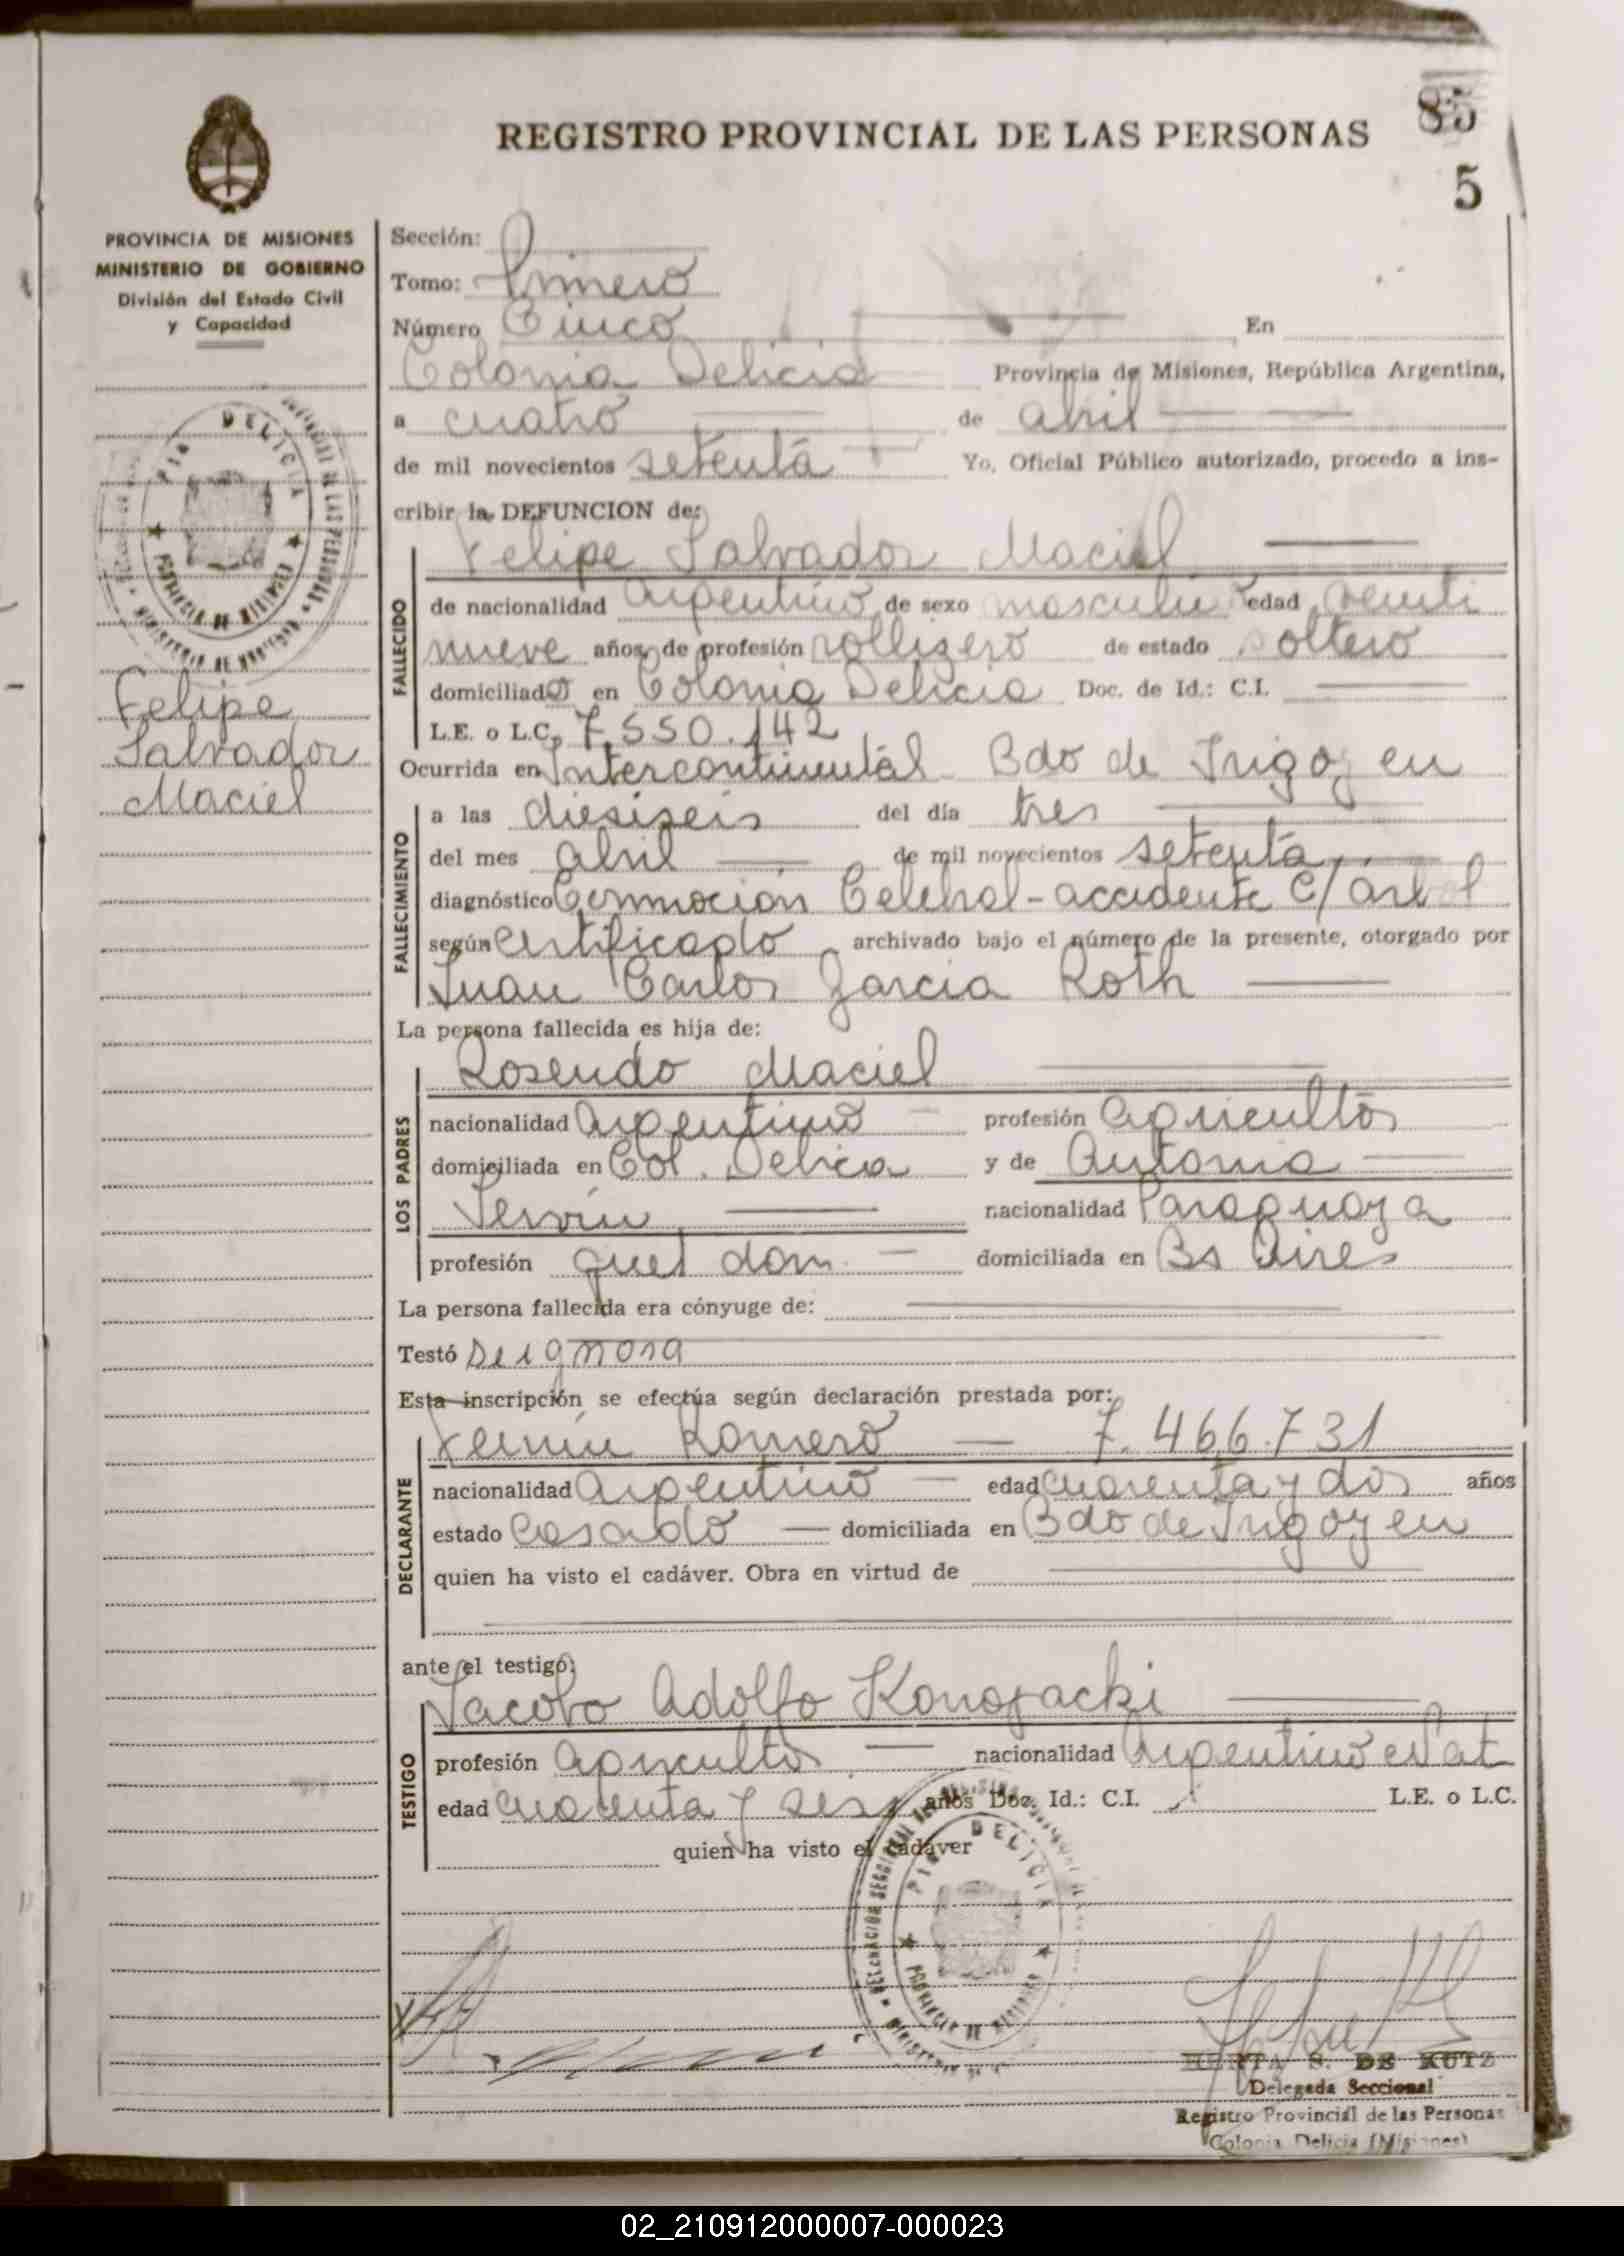 85
REGISTRO PROVINCIAL DE LAS PERSONAS
5
PROVINCIA DE MISIONES
MINISTERIO DE GOBIERNO
División del Estado Civil
y Capacidad
Felipe
Salvador
Maciel
Sección:
Tomo: Primero
Número Cinco En
Colonia Delicia Provincia de Misiones, República Argentina,
a cuatro de abril
de mil novecientos setenta Yo, Oficial Público autorizado, procedo a ins-
cribir la DEFUNCION de:
Felipe Salvador Maciel
FALLECIDO
de nacionalidad Argentino de sexo masculino edad veinti
nueve años, de profesión rollizero de estado soltero
domiciliado en Colonia Delicia Doc. de Id.: C.I.
L.E. o L.C. 7.550.142
Ocurrida en Intercontinental Bdo de Irigoyen
FALLECIMIENTO
a las dieciseis del día tres
del mes abril de mil novecientos setenta
diagnóstico Conmoción Celebral - accidente c/ arbol
según certificado archivado bajo el número de la presente, otorgado por
Juan Carlos Garcia Roth
La persona fallecida es hija de:
LOS PADRES
Rosendo Maciel
nacionalidad Argentino profesión agricultor
domiciliada en Col. Delica y de Antonia
Servin nacionalidad Paraguaya
profesión quet dom. domiciliada en Bs Aires
La persona fallecida era cónyuge de:
Testó se ignora
Esta inscripción se efectúa según declaración prestada por:
DECLARANTE
Fermin Romero 7.466.731
nacionalidad Argentino edad cuarenta y dos años
estado Casado domiciliada en Bdo de Irigoyen
quien ha visto el cadáver. Obra en virtud de
ante el testigo:
TESTIGO
Jacobo Adolfo Konojacki
profesión agricultor nacionalidad Argentino Nat
edad cuarenta y seis años Doc. Id.: C.I. L.E. o L.C.
quien ha visto el cadáver
PTO DELICIA
PROVINCIA DE MISIONES
HERTA S. DE KUTZ
Delegada Seccional
Registro Provincial de las Personas
Colonia Delicia (Misiones)
02_210912000007-000023